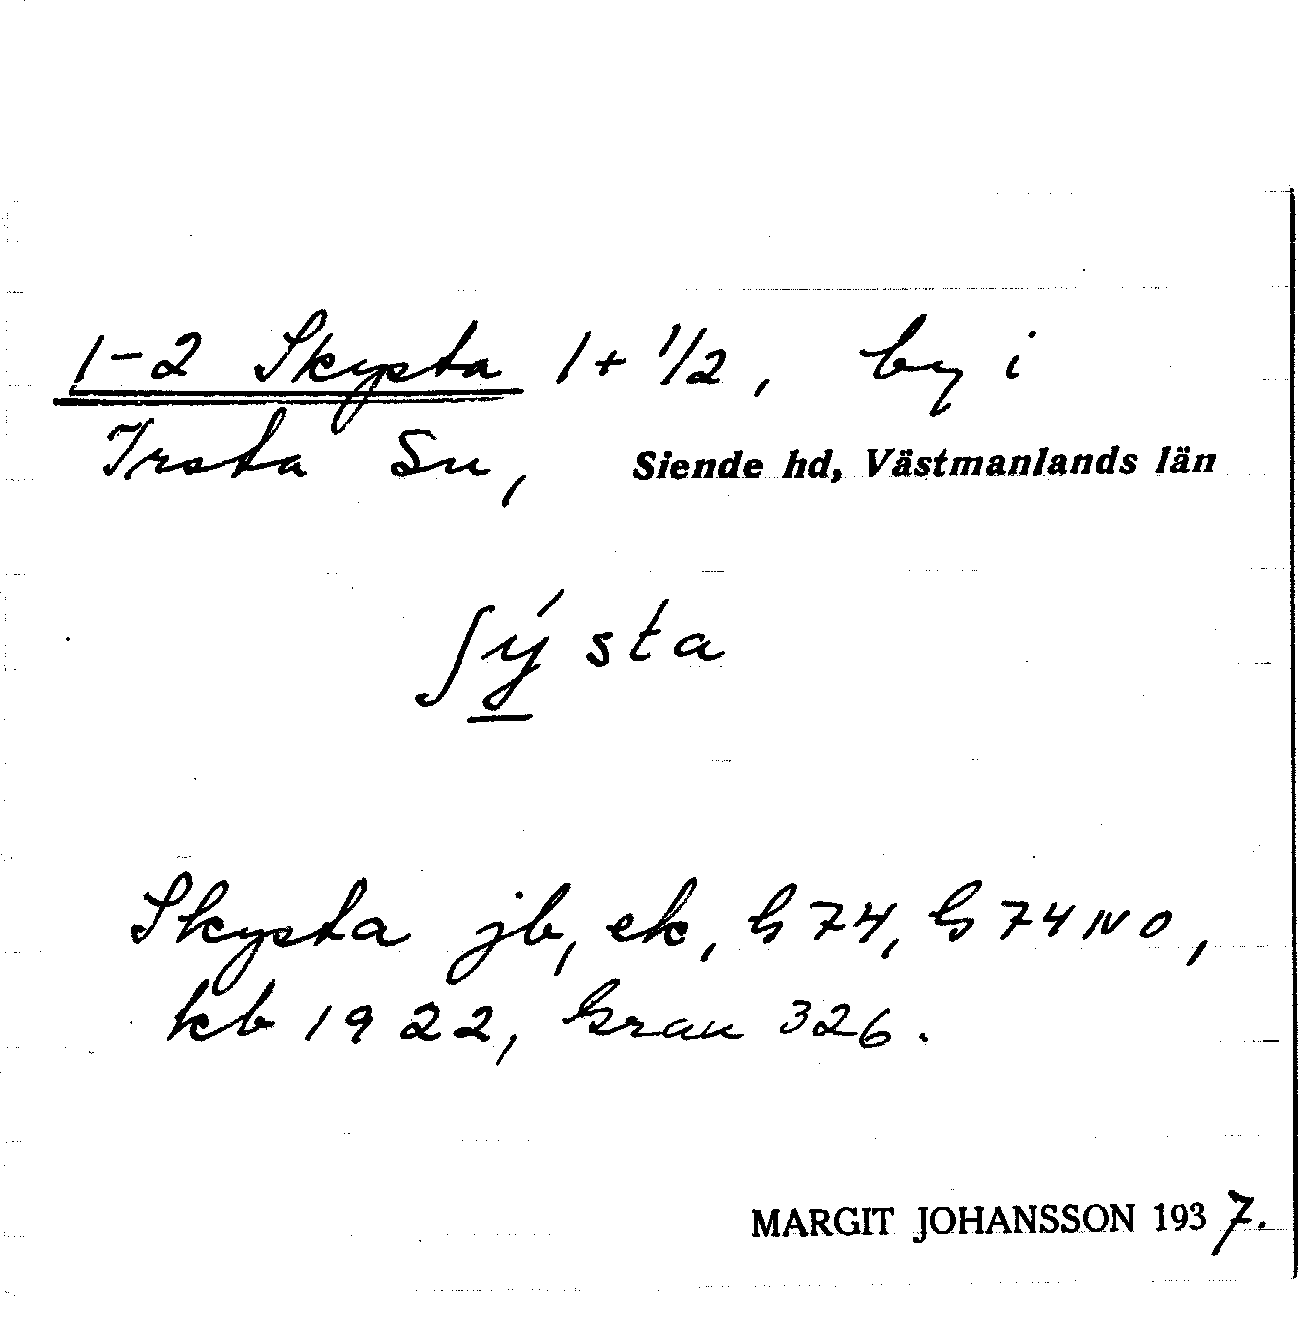 1-2 Skysta 1 + 1/2, by i
Irsta Sn, Siende hd, Västmanlands län
ʃý sta
Skysta jb, ek, G 74, G 74 NO,
kb 1922, Grau 326.
MARGIT JOHANSSON 1937.